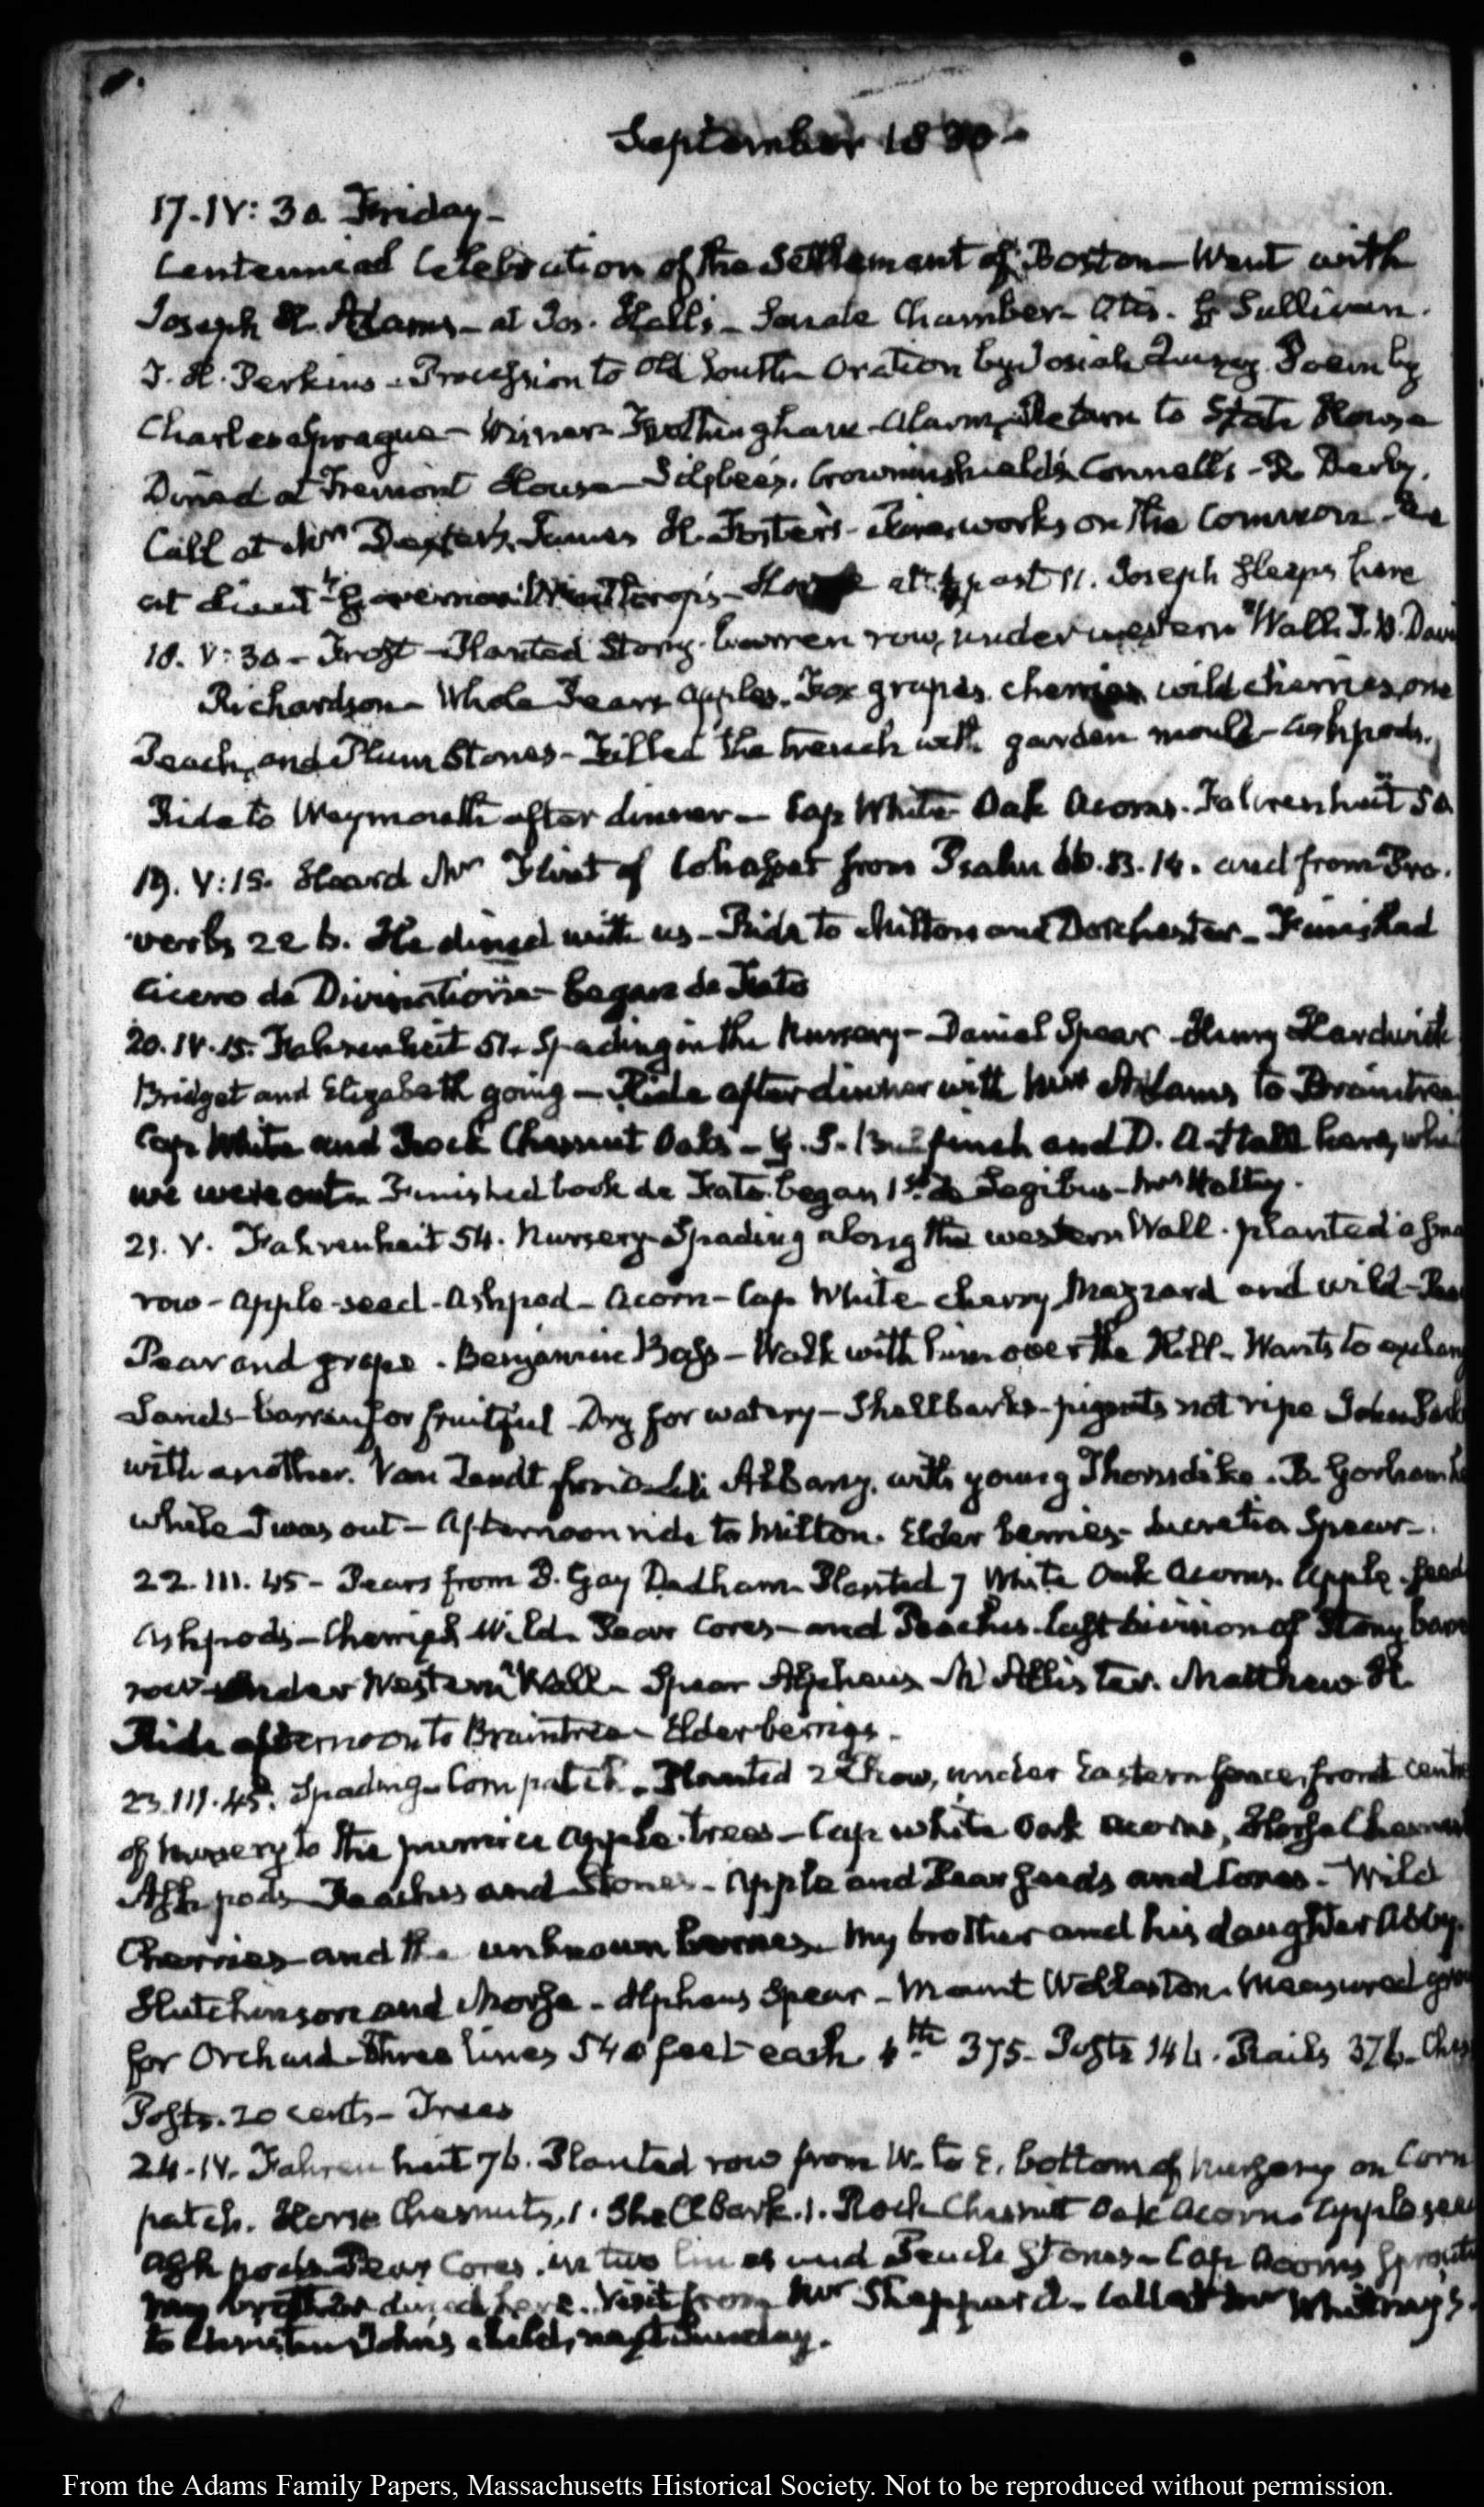 September 1830-
17. IV: 30 Friday-
Centennial Celebration of the Settlement of Boston- Went with
Joseph H. Adams- at Jos. Hall's- Senate Chamber- Otis. Sullivan.
T. H. Perkins- Procession to Old South- Oration by Josiah Quincy. Poem by
Charles Sprague- Frothingham- Alarm, Return to State House
Dined at Tremont House- Silsbee's. Crowninshield's Connell's- R Derby.
Call at Mrs Dexter's. James H. Foster's- Fireworks on the Common.
at Lieutt Governor Winthrop's- at ½ past 11. Joseph Sleeps here
18. V: 30- Frost- Planted Stony barren row, under western Wall. T. B. Davi
Richardson- Whole Pears apples. Fox grapes. cherries wild cherries, one
Peach, and Plum Stones- Filled the trench with garden mould- ash pods.
Ride to Weymouth after dinner- Cap White Oak Acorns. Fahrenheit 50
19. V: 15. Heard Mr Flint of Cohasset from Psalm 66. 13. 14. and from Pro-
verbs 22 6. He dined with us- Ride to Milton and Dorchester- Finished
Cicero de Divinatione- began de Fato
20. IV. 15. Fahrenheit 51. Spading in the Nursery- Daniel Spear- Henry Hardwick
Bridget and Elizabeth going- Ride after dinner with Mrs Adams to Braintree
Cap White and Rock Chesnut Oaks- G. S. Bulfinch and D. A. Hall here, whi
we were out- Finished book de Fato. began 1st de Legibus-
21. V. Fahrenheit 54. Nursery- Spading along the western Wall. planted a sma
row- apple-seed- Ashpod- Acorn- Cap White cherry Mazzard and wild-
Pear and grape. Benjamin Bass- Walk with him over the Hill- Wants to exchang
Lands- barren for fruitful- Dry for watery- Shellbarks- pignuts not ripe John
with another. Van Zandt from Albany. with young Thorndike. B. Gorham
while I was out- Afternoon ride to Milton. Elder berries- Lucretia Spear-
22. III. 45- Pears from B. Gay Dedham- Planted 7 White Oak Acorns. Apple-seed
Ashpods- Cherries Wild- Pear Cores- and Peaches. last division of Stony barr
row under Western Wall- Spear Alpheus Matthew H.
Ride afternoon to Braintree- Elderberries.
23. III. 45. Spading- Corn patch. Planted 2d row, under Eastern fence, from centre
of Nursery to the apple-trees- Cap white Oak acorns, Horse Chesnut
Ash pods- Peaches and Stones- Apple and Pear seeds and Cores- Wild
Cherries and the unknown berries. My brother and his daughter Abby.
Hutchinson and Morse- Alpheus Spear- Mount Wollaston. Measured gro
for Orchard- three lines 540 feet each. 4th 375- Posts 144. Rails 376- Ches
Posts. 20 cents- Trees
24. IV. Fahrenheit 76. Planted row from W. to E. bottom of Nursery on Corn
patch. Horse Chesnuts, 1. Shellbark. 1. Rock Chesnut Oak Acorns Apple see
ash pods- Pear Cores. in two lines and Peach Stones- Cap Acorns Sprouti
My brother dined here. Visit from Mr Sheppard- Call at Mr Whitney's.
to Christen John's child, next Sunday.
From the Adams Family Papers, Massachusetts Historical Society. Not to be reproduced without permission.